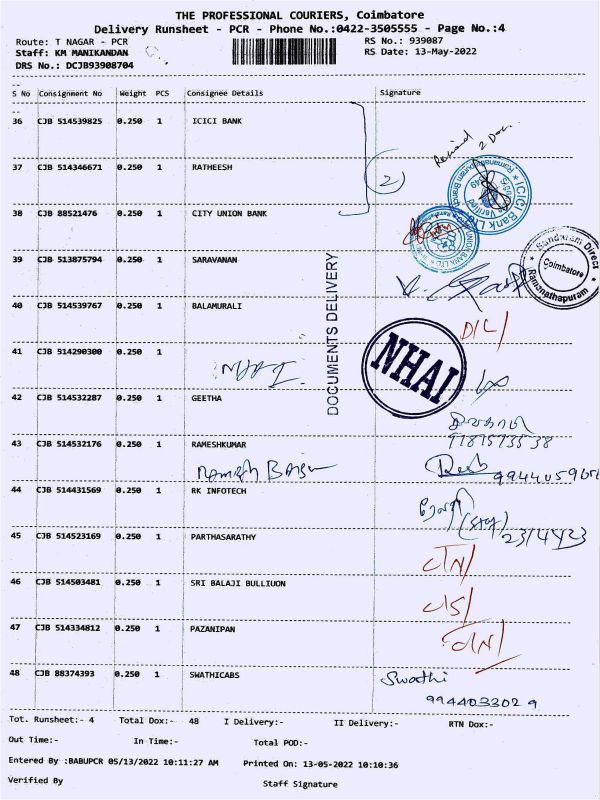 THE PROFESSIONAL COURIERS, Coimbatore
Delivery Runsheet - PCR - Phone No.:0422-3505555 - Page No.:4
Route: T NAGAR - PCR RS No.: 939087
Staff: KM MANIKANDAN RS Date: 13-May-2022
DRS No.: DCJB93908704
S No Consignment No Weight PCS Consignee Details Signature
36 CJB 514539825 0.250 1 ICICI BANK
37 CJB 514346671 0.250 1 RATHEESH
2
38 CJB 88521476 0.250 1 CITY UNION BANK
39 CJB 513875794 0.250 1 SARAVANAN
Sundaram Direct
Coimbatore
Ramanathapuram
40 CJB 514539767 0.250 1 BALAMURALI
D/L/
DOCUMENTS DELIVERY
41 CJB 514290300 0.250 1
NHAI
NHAI
42 CJB 514532287 0.250 1 GEETHA
43 CJB 514532176 0.250 1 RAMESHKUMAR
Ramesh Babu
44 CJB 514431569 0.250 1 RK INFOTECH
45 CJB 514523169 0.250 1 PARTHASARATHY
46 CJB 514503481 0.250 1 SRI BALAJI BULLIUON
47 CJB 514334812 0.250 1 PAZANIPAN
48 CJB 88374393 0.250 1 SWATHICABS
Swathi
9944033029
Tot. Runsheet:- 4 Total Dox:- 48 I Delivery:- II Delivery:- RTN Dox:-
Out Time:- In Time:- Total POD:-
Entered By :BABUPCR 05/13/2022 10:11:27 AM Printed On: 13-05-2022 10:10:36
Verified By Staff Signature